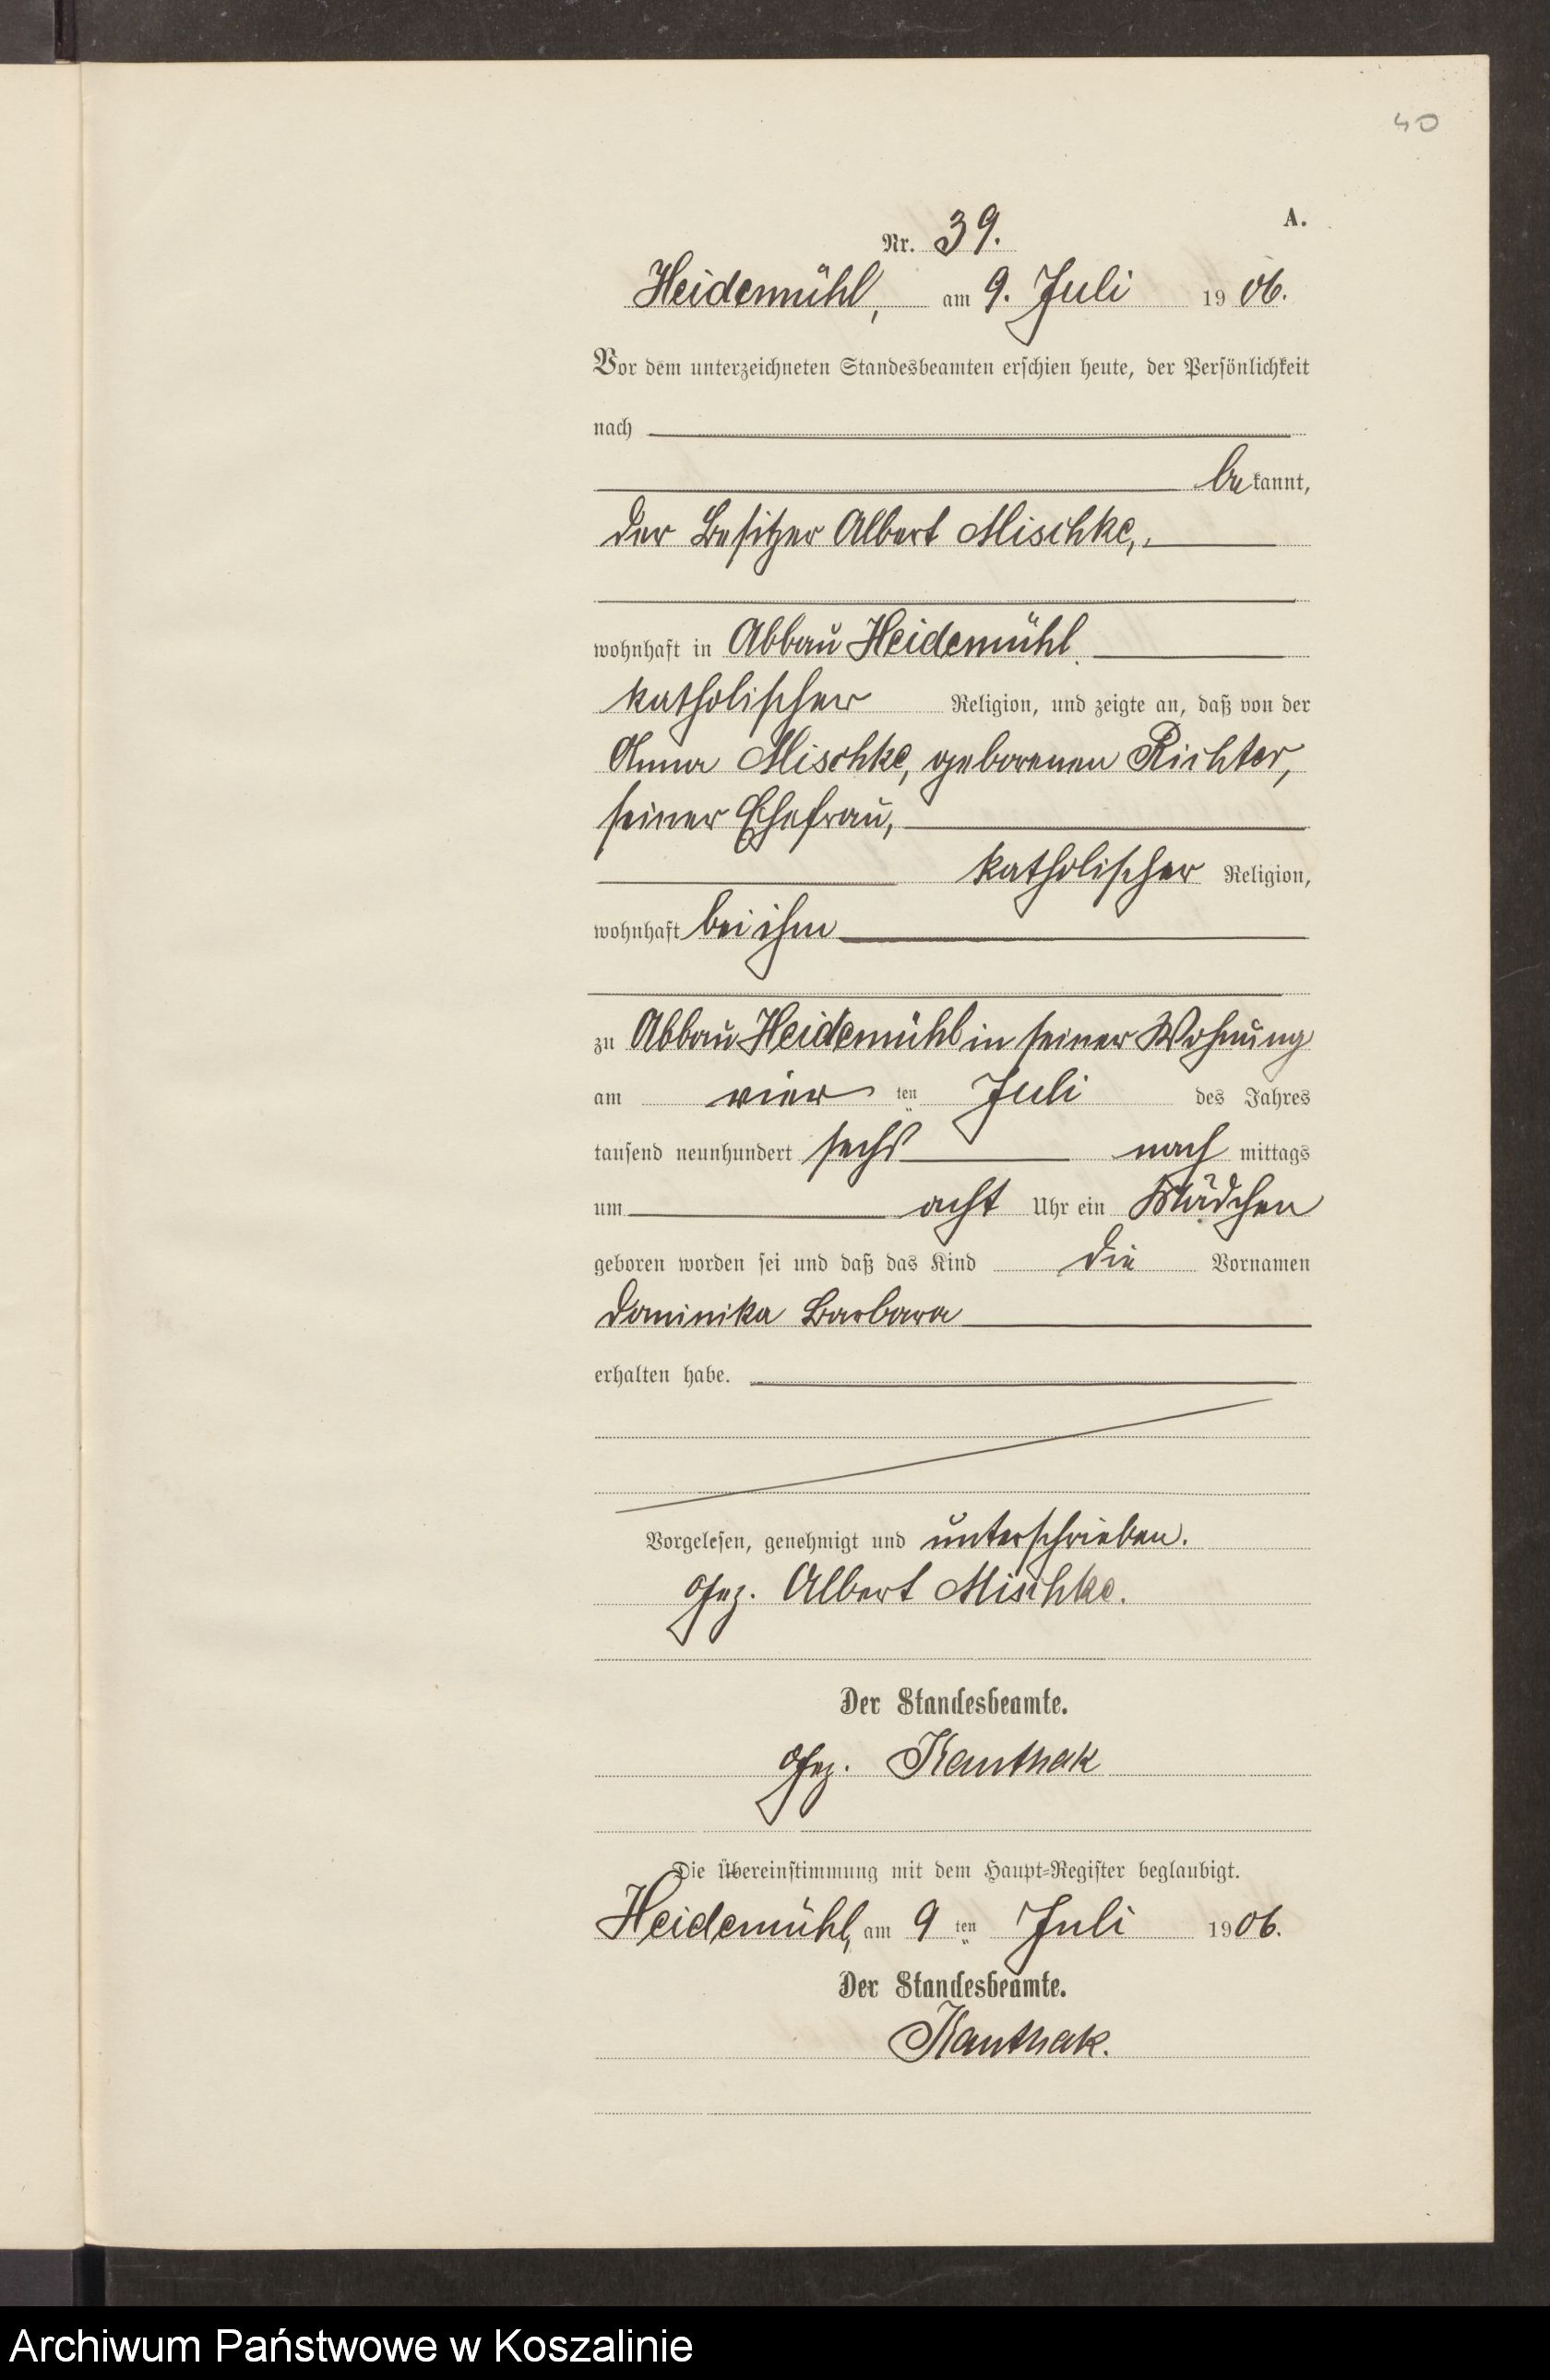 40
A.
Nr. 39.
Heidemühl, am 9. Juli 1906.
Vor dem unterzeichneten Standesbeamten erschien heute, der Persönlichkeit
nach
bekannt,
der Besitzer Albert Mischke,
wohnhaft in Abbau Heidemühl
katholischer Religion, und zeigte an, daß von der
Anna Mischke, geborenen Richter,
seiner Ehefrau,
katholischer Religion,
wohnhaft bei ihm
zu Abbau Heidemühl in seiner Wohnung
am vier ten Juli des Jahres
tausend neunhundert sechs nach mittags
um acht Uhr ein Mädchen
geboren worden sei und daß das Kind die Vornamen
Dominika Barbara
erhalten habe.
Vorgelesen, genehmigt und unterschrieben.
Gez. Albert Mischke.
Der Standesbeamte.
Gez. Kanthak
Die Übereinstimmung mit dem Haupt-Register beglaubigt.
Heidemühl, am 9 ten Juli 1906.
Der Standesbeamte.
Kanthak.
Archiwum Państwowe w Koszalinie